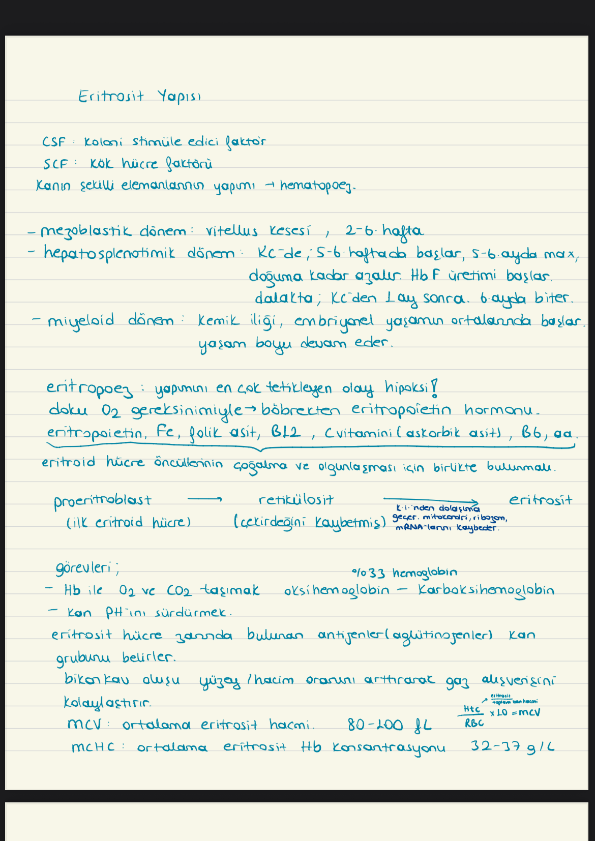 Eritrosit Yapısı
CSF : koloni stimüle edici faktör
SCF : kök hücre faktörü
Kanın şekilli elemanlarının yapımı → hematopoez.
- mezoblastik dönem : vitellus kesesi , 2-6. hafta
- hepatosplenotimik dönem : KC'de ; 5-6 haftada başlar, 5-6. ayda max,
doğuma kadar azalır. HbF üretimi başlar.
dalakta ; KC'den 1 ay sonra. 6. ayda biter.
- miyeloid dönem : kemik iliği, embriyonel yaşamın ortalarında başlar.
yaşam boyu devam eder.
eritropoez : yapımını en çok tetikleyen olay hipoksi!
doku O2 gereksinimiyle → böbrekten eritropoietin hormonu.
eritropoietin, Fe, folik asit, B12 , C vitamini (askorbik asit) , B6, aa.
eritroid hücre öncüllerinin çoğalma ve olgunlaşması için birlikte bulunmalı.
proeritroblast → retikülosit → eritrosit
(ilk eritroid hücre) (çekirdeğini kaybetmiş) k.i'nden dolaşıma
geçer. mitocondri, ribozom,
mRNA'larını kaybeder.
görevleri ; %33 hemoglobin
- Hb ile O2 ve CO2 taşımak oksihemoglobin - Karboksihemoglobin
- kan PH'ını sürdürmek.
eritrosit hücre zarında bulunan antijenler (aglütinojenler) kan
grubunu belirler.
bikonkav oluşu yüzey / hacim oranını arttırarak gaz alışverişini
kolaylaştırır.
MCV : ortalama eritrosit hacmi. 80-100 fL Htc / RBC x 10 = MCV
MCHC : ortalama eritrosit Hb konsantrasyonu 32-37 g/L